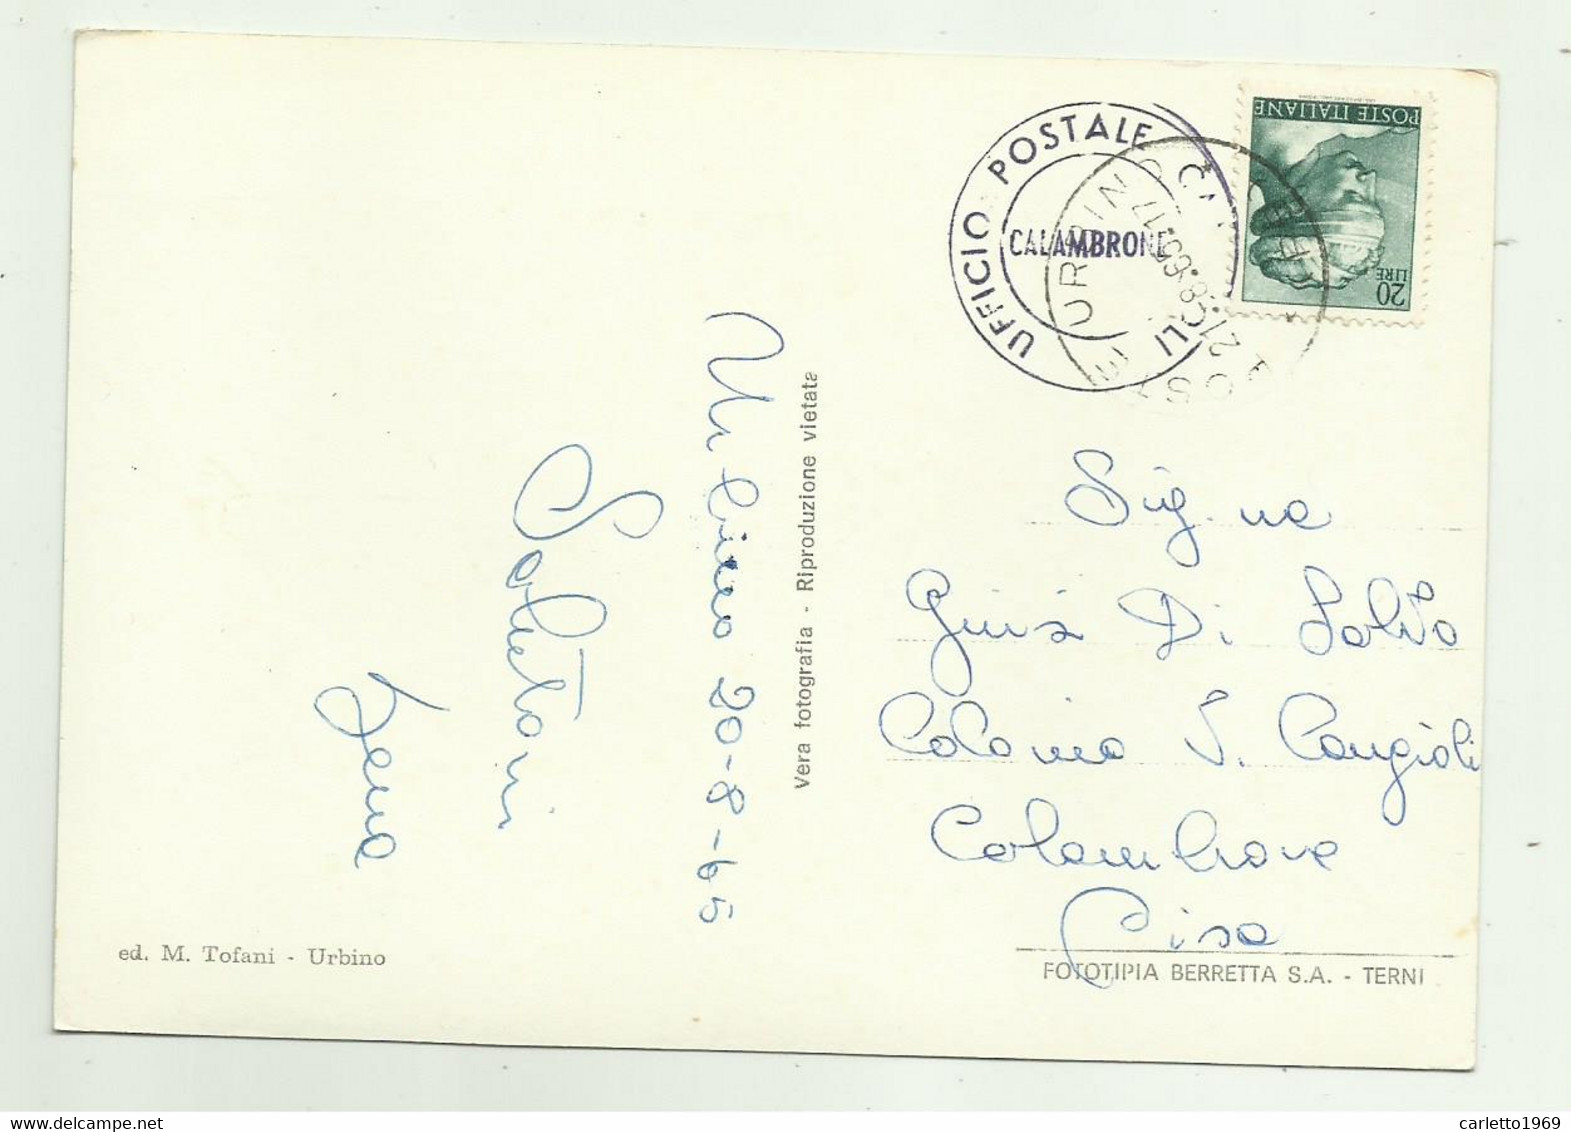 Urbino 20-8-65
Saluttoni
ed. M. Tofani - Urbino
Vera fotografia - Riproduzione vietata
UFFICIO POSTALE
CALAMBRONE
URBINO
POSTE ITALIANE
LIRE
20
Sig. na
Di Salvo
Colonia S. Cangioli
Calambrone
Pisa
FOTOTIPIA BERRETTA S.A. - TERNI
www.delcampe.net
carletto1969